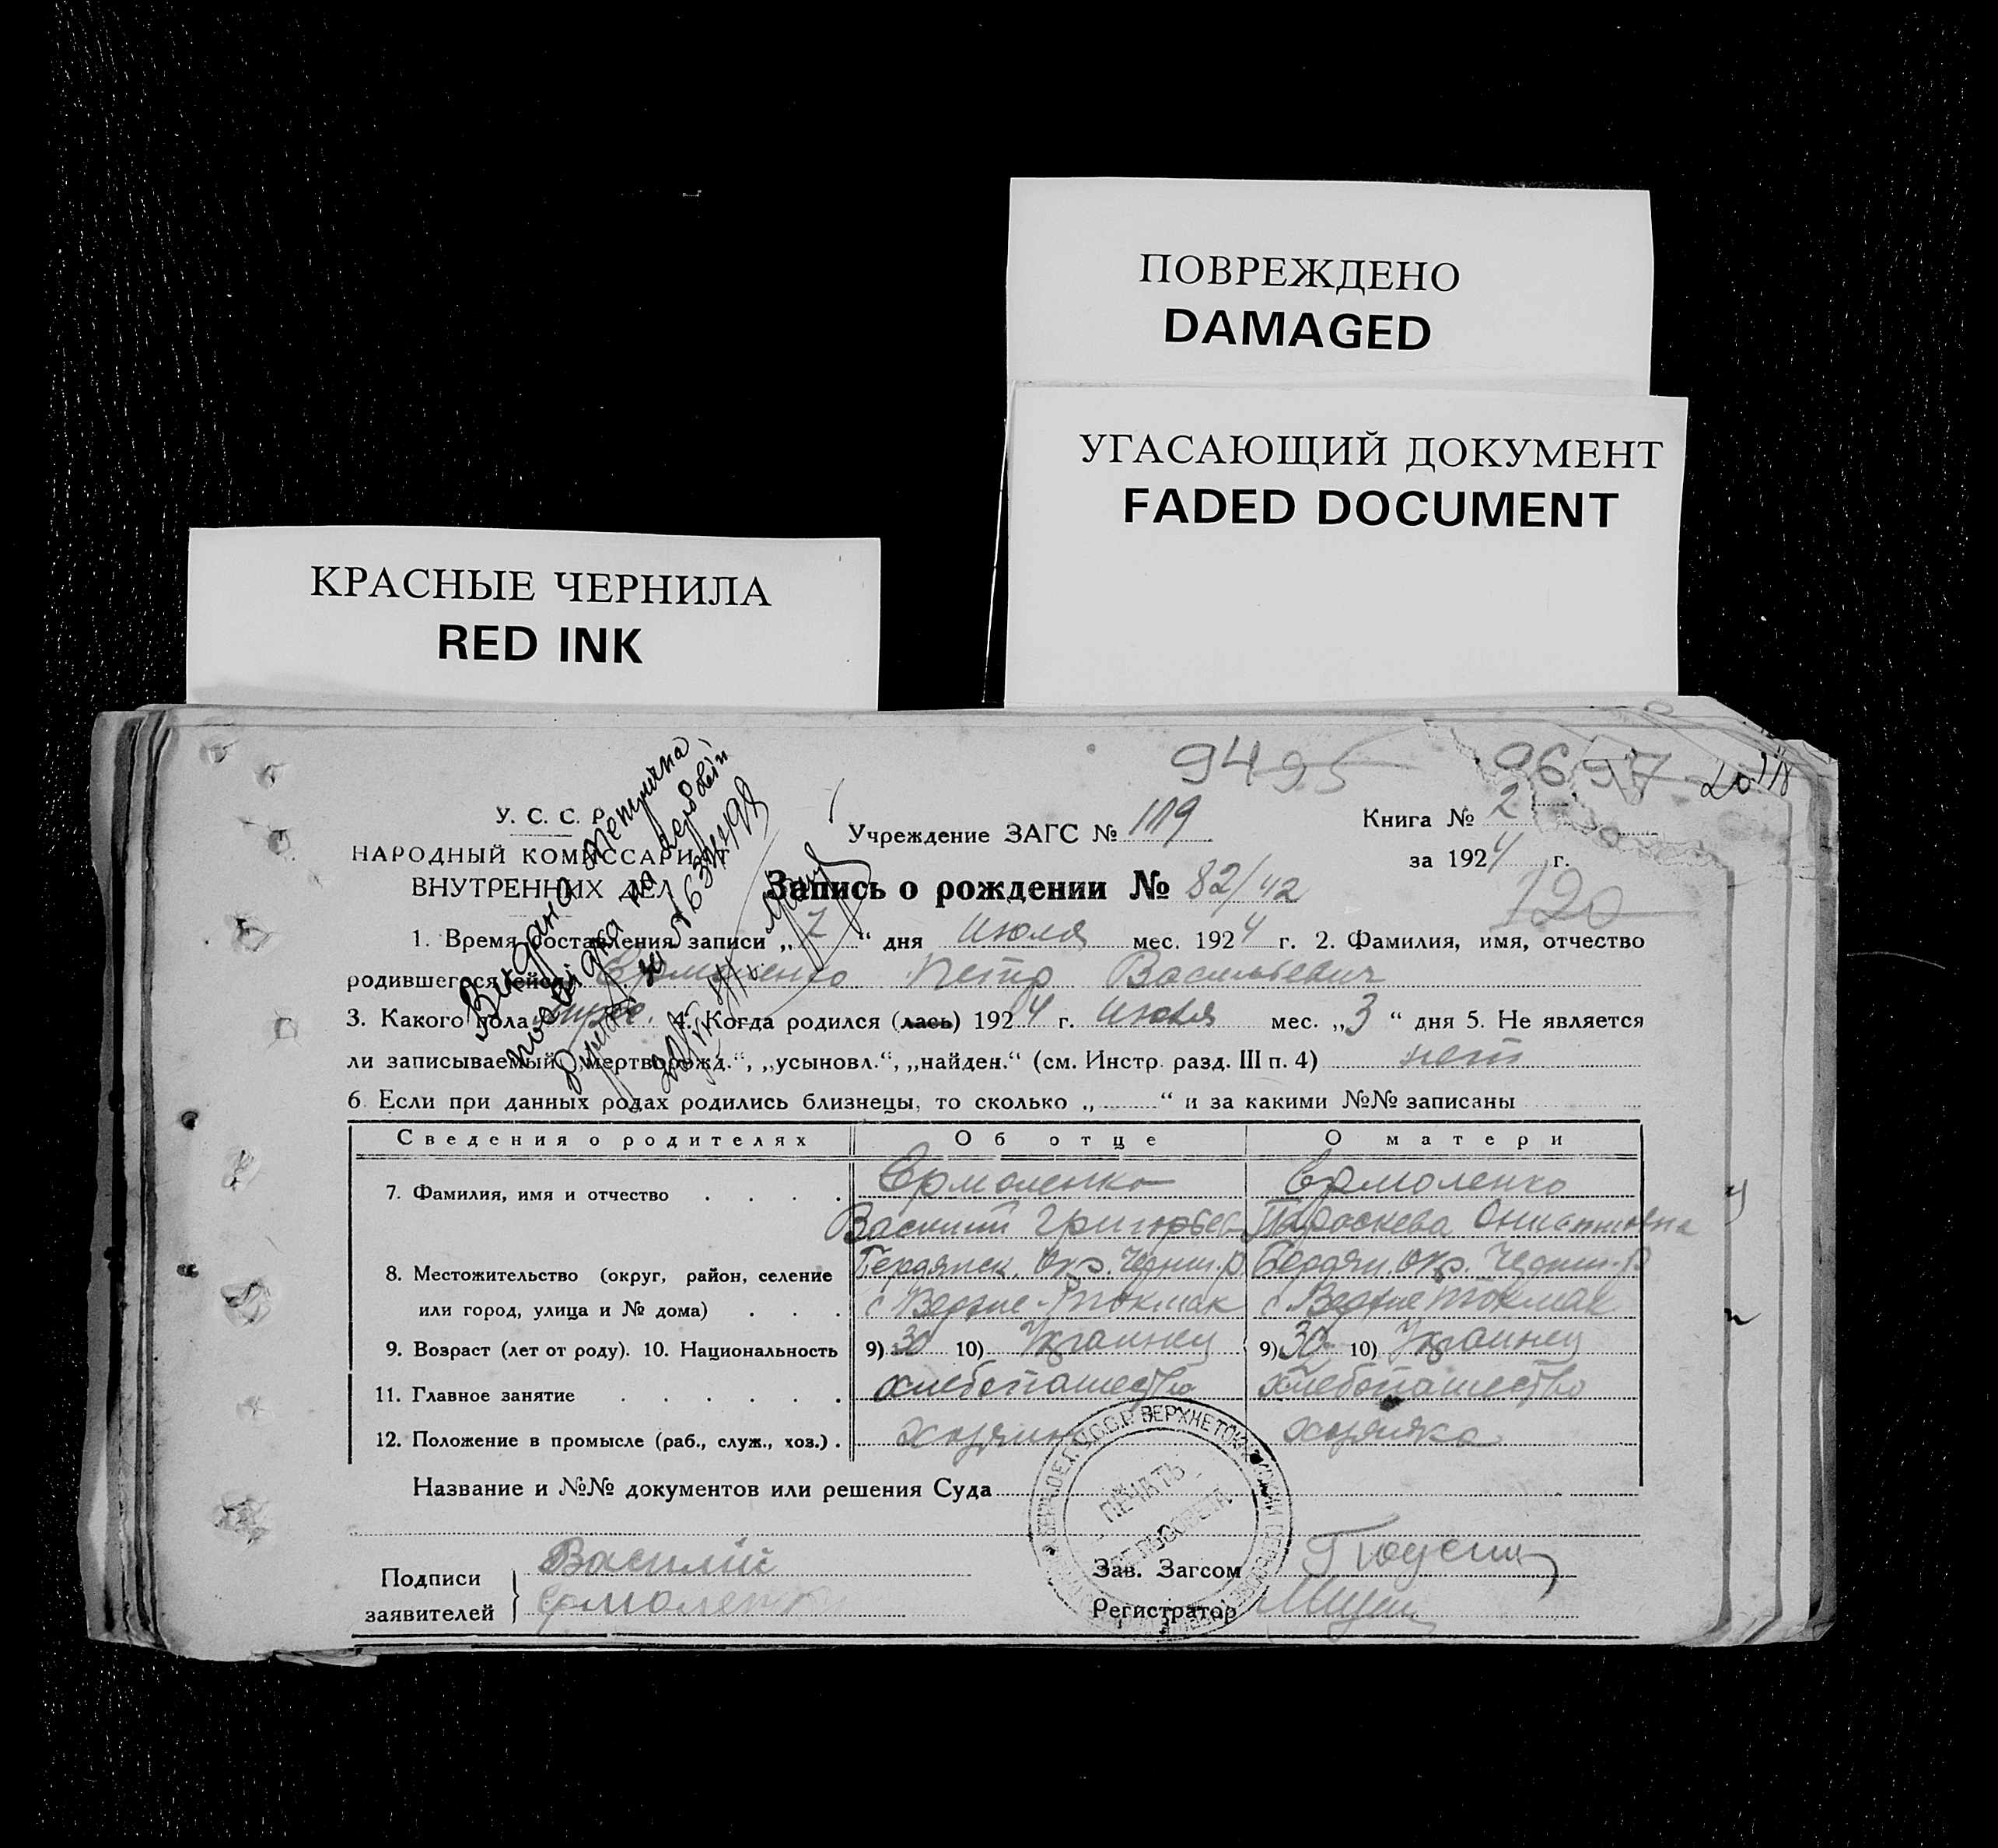 ПОВРЕЖДЕНО
DAMAGED
УГАСАЮЩИЙ ДОКУМЕНТ
FADED DOCUMENT
КРАСНЫЕ ЧЕРНИЛА
RED INK
9495
У. С. С. Р.
НАРОДНЫЙ КОМИССАРИАТ
ВНУТРЕННИХ ДЕЛ
Видана метрична
Учреждение ЗАГС № 119
Книга № 2
за 1924 г.
120
Запись о рождении № 82/42
1. Время составления записи „7“ дня Июля мес. 1924 г. 2. Фамилия, имя, отчество
родившегося (ейся) Ермоленко Петр Васильевич
3. Какого пола муж. 4. Когда родился (лась) 1924 г. Июля мес. „3“ дня 5. Не является
ли записываемый „мертворожд.“, „усыновл.“, „найден.“ (см. Инстр. разд. III п. 4) нет
6. Если при данных родах родились близнецы, то сколько „ “ и за какими №№ записаны
Сведения о родителях Об отце О матери
7. Фамилия, имя и отчество Ермоленко Ермоленко
Василий Григорьев Параскева
8. Местожительство (округ, район, селение Бердянск. Окр. Бердян. Окр.
или город, улица и № дома) с. Верхне-Токмак с. Верхне Токмак
9. Возраст (лет от роду). 10. Национальность 9) 30 10) Украинец 9) 30 10) Украинец
11. Главное занятие хлебопашество хлебопашество
12. Положение в промысле (раб., служ., хоз.) хозяин хозяйка
Название и №№ документов или решения Суда
ПЕЧАТЬ
СЕЛЬСОВЕТА
Подписи Василий
заявителей Ермоленко
Зав. Загсом
Регистратор